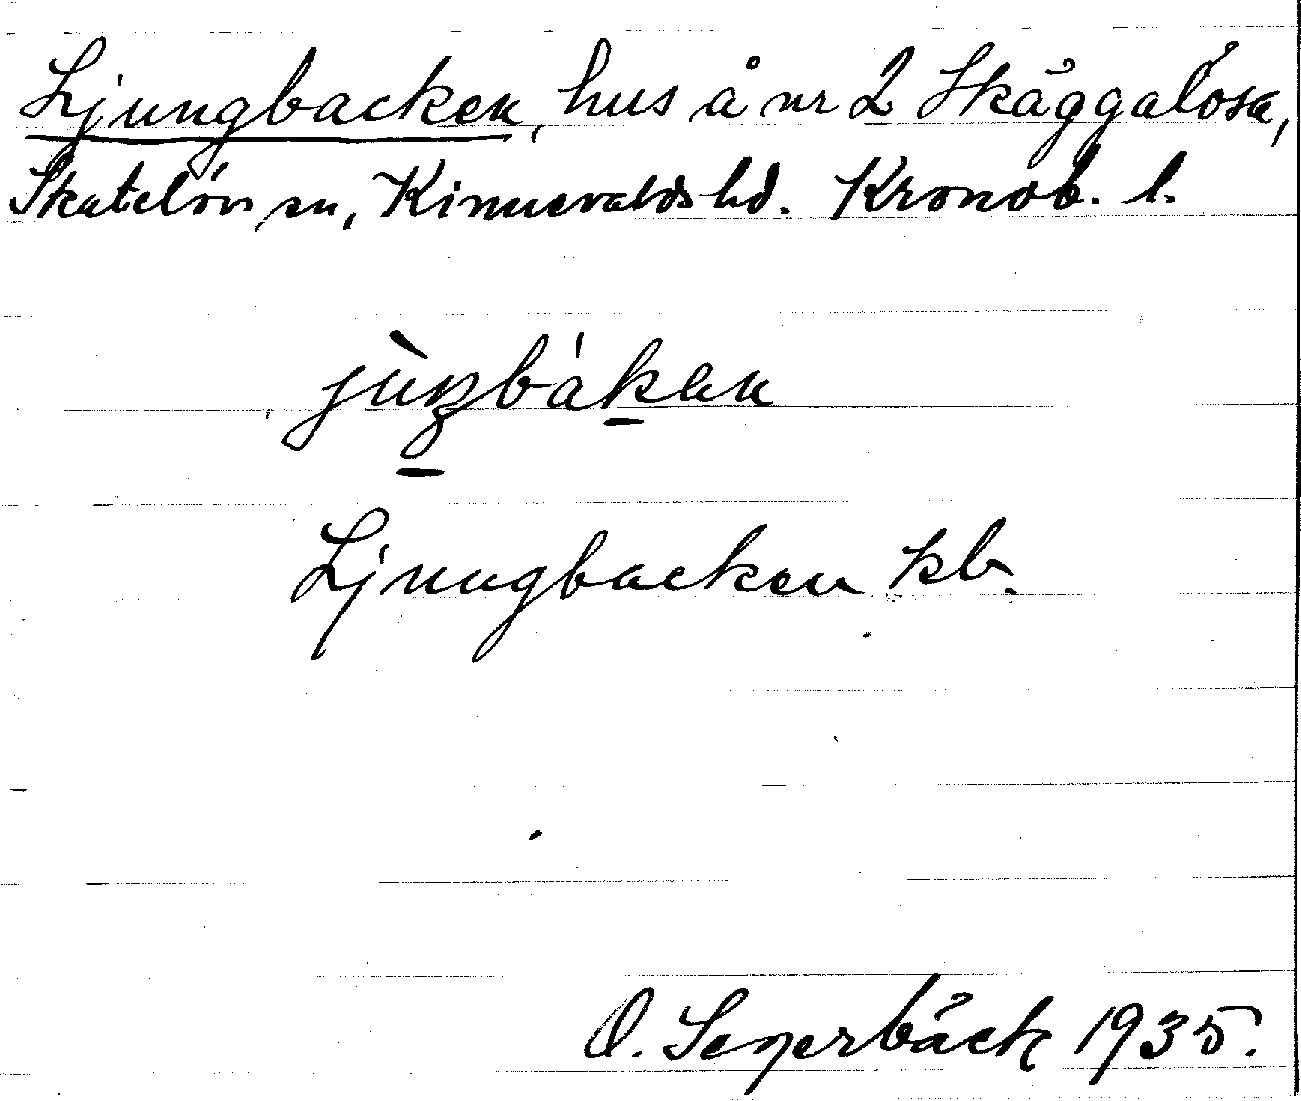 Ljungbacken, hus å nr 2 Skäggalösa,
Skatelövs sn, Kinnevalds hd. Kronob. l.
jùŋbákən
Ljungbacken kb.
O. Senerbäck 1935.